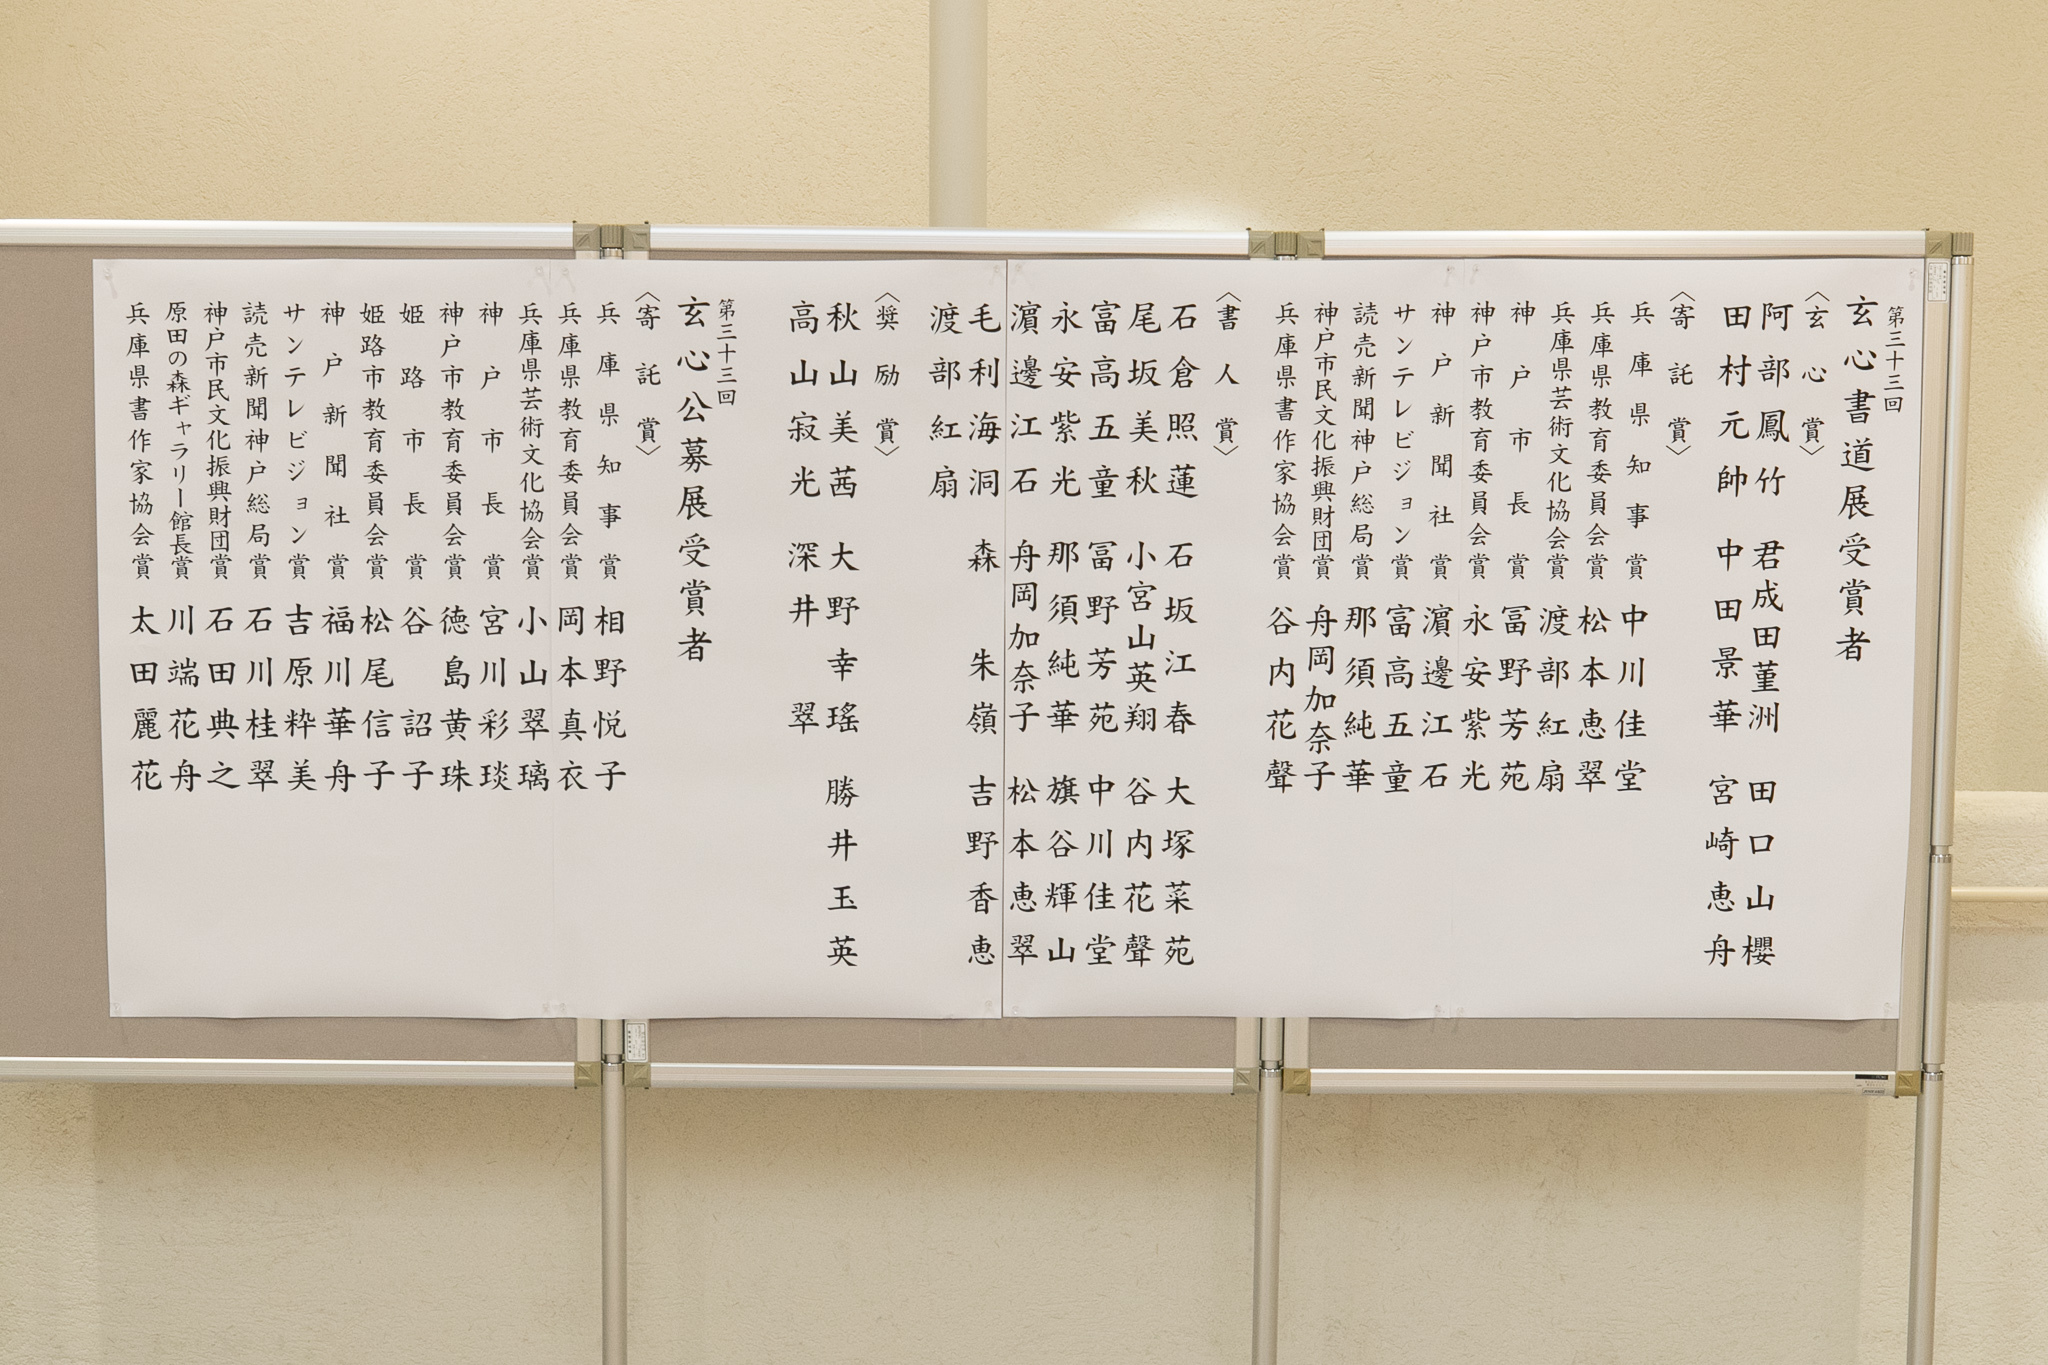 第三十三回
玄心書道展受賞者
〈玄心賞〉
阿部鳳竹　君成田菫洲　田口山櫻
田村元帥　中田景華　宮崎恵舟
〈寄託賞〉
兵庫県知事賞　中川佳堂
兵庫県教育委員会賞　松本恵翠
兵庫県芸術文化協会賞　渡部紅扇
神戸市長賞　冨野芳苑
神戸市教育委員会賞　永安紫光
神戸新聞社賞　濵邊江石
サンテレビジョン賞　富高五童
読売新聞神戸総局賞　那須純華
神戸市民文化振興財団賞　舟岡加奈子
兵庫県書作家協会賞　谷内花聲
〈書人賞〉
石倉照蓮　石坂江春　大塚菜苑
尾坂美秋　小宮山英翔　谷内花聲
富高五童　冨野芳苑　中川佳堂
永安紫光　那須純華　旗谷輝山
濵邊江石　舟岡加奈子　松本恵翠
毛利海洞　森朱嶺　吉野香恵
渡部紅扇
〈奨励賞〉
秋山美茜　大野幸瑤　勝井玉英
高山寂光　深井翠
第三十三回
玄心公募展受賞者
〈寄託賞〉
兵庫県知事賞　相野悦子
兵庫県教育委員会賞　岡本真衣
兵庫県芸術文化協会賞　小山翠璃
神戸市長賞　宮川彩琰
神戸市教育委員会賞　徳島黄珠
姫路市長賞　谷詔子
姫路市教育委員会賞　松尾信子
神戸新聞社賞　福川華舟
サンテレビジョン賞　吉原粋美
読売新聞神戸総局賞　石川桂翠
神戸市民文化振興財団賞　石田典之
原田の森ギャラリー館長賞　川端花舟
兵庫県書作家協会賞　太田麗花